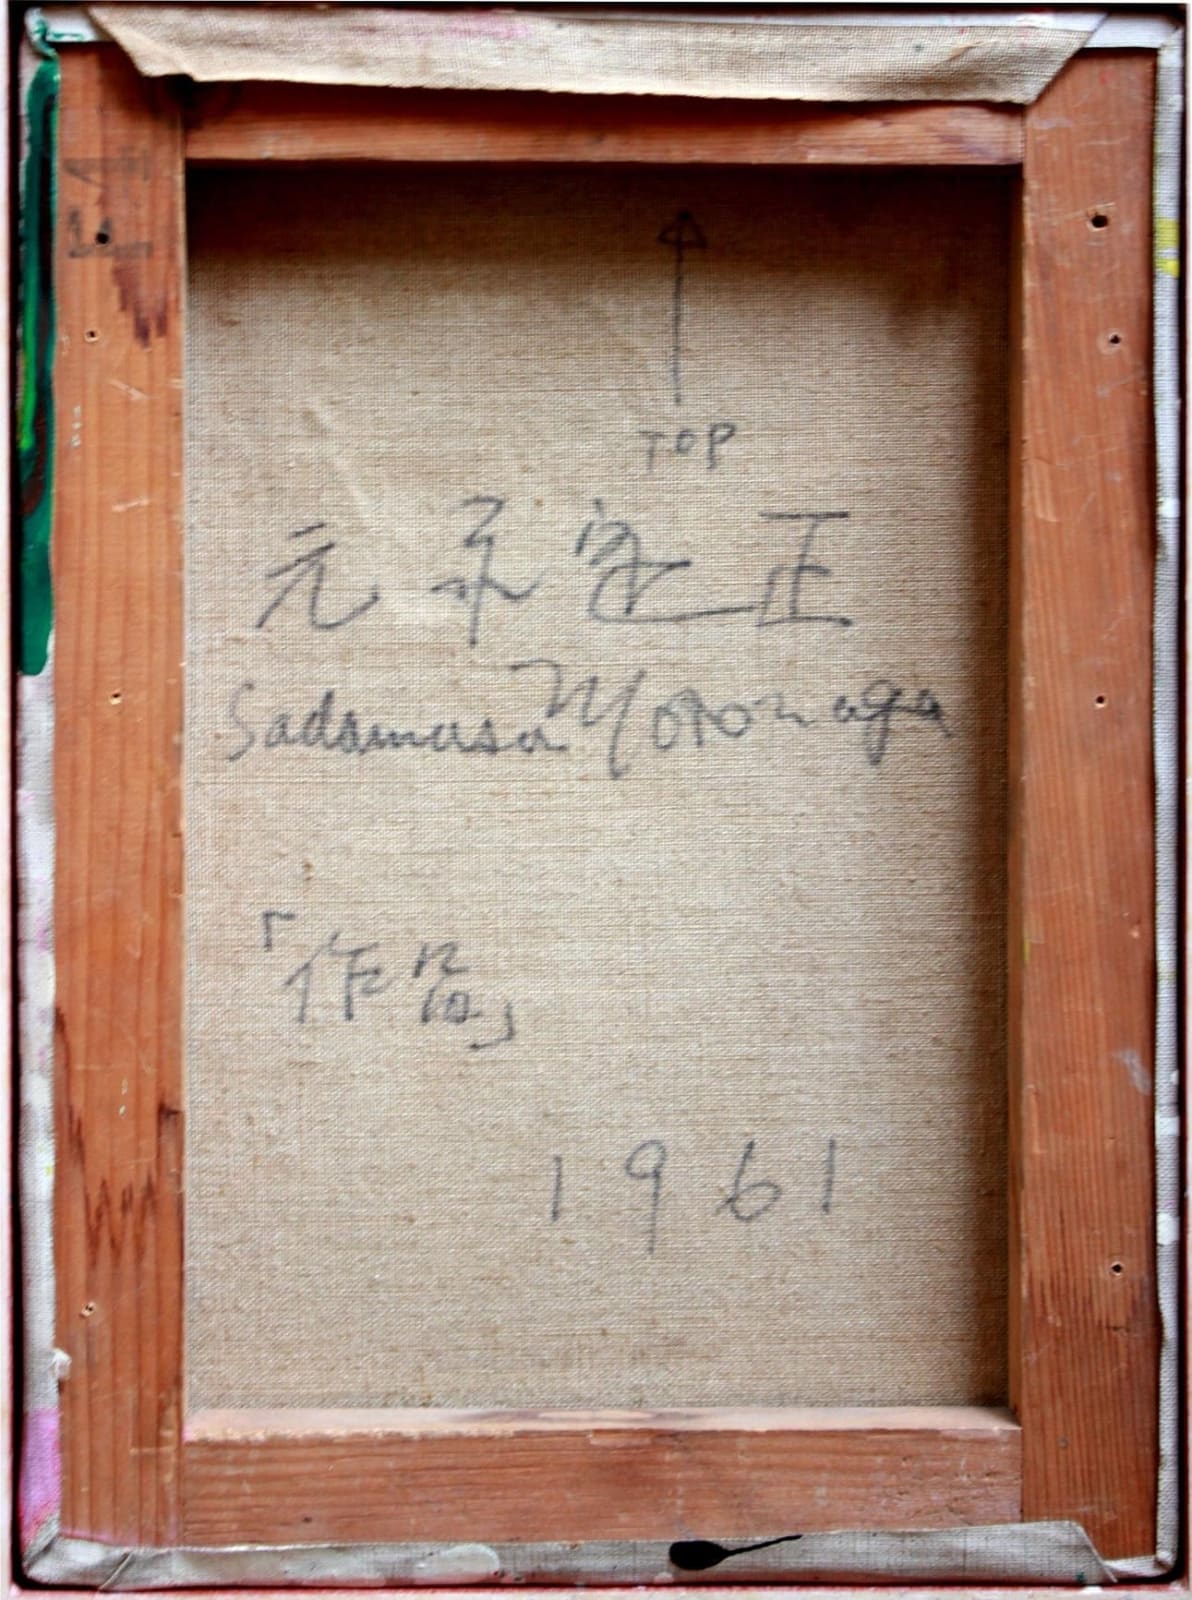 TOP
元永定正
Sadamasa Motonaga
「作品」
1961